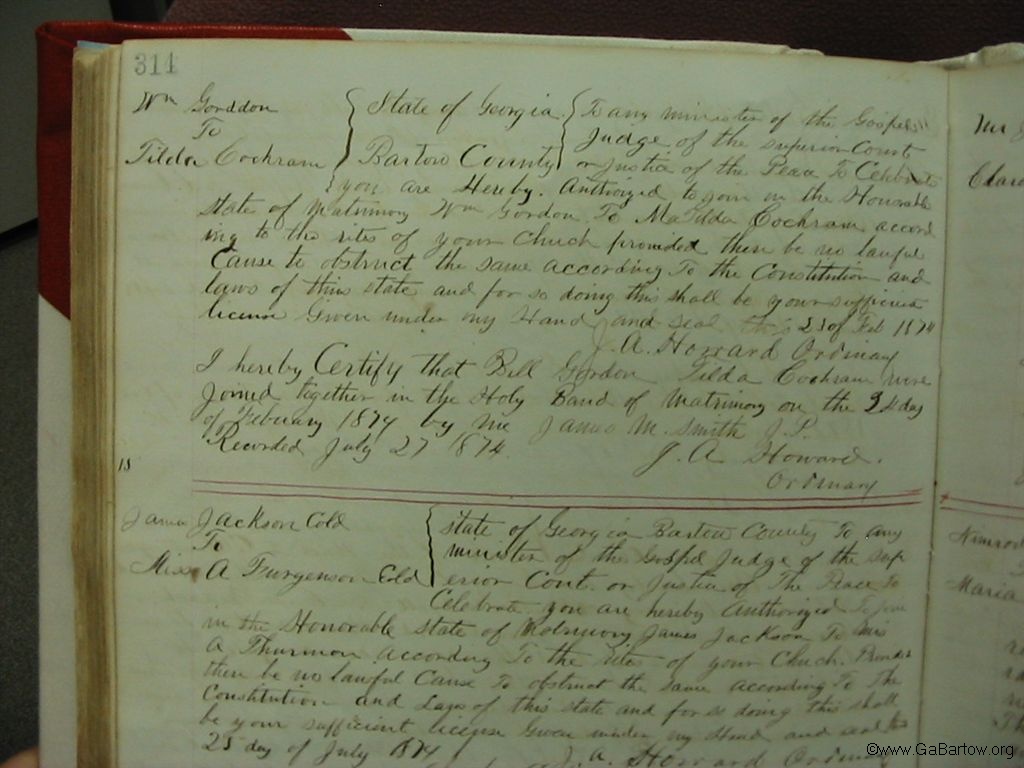 314
Wm Gorddon
To
Tilda Cochram
State of Georgia
Bartow County
To any minister of the Gospel
Judge of the superior Court
or Justice of the Peace To Celebrate
you are Hereby. Authorized to join in the Honorable
state of Matrimony Wm Gordon To Matilda Cochram accord
ing to the rites of your Chuch provided there be no lawful
Cause to obstruct the same according To the Constitution and
laws of this state and for so doing this shall be your sufficien
license Given under my Hand and seal this 23 of Feb 1874
J. A. Howard Ordinary
I hereby Certify that Bill Gordon Tilda Cochram were
Joined together in the Holy Band of Matrimony on the 24 day
of Febuary 1874 by me James M. Smith J. P.
Recorded July 27 1874.
J. A Howard.
Ordinary
18
James Jackson Cold
To
Miss A Furgenson Cold
state of Georgia Bartow County To any
minister of the Gospel Judge of the sup
erior Cort. or Justice of The Peace To
Celebrate. you are hereby Authorized To join
in the Honorable state of Matrimony James Jackson To Miss
A Thurmon according To the rites of your Chuch. Provided
there be no lawful Cause To obstruct the same according To The
Constitution and Laws of this state and for so doing this shall
be your sufficient license Given under my Hand and seal this
25 day of July 1874
J. A. Howard Ordinary
Mr J
Clar
Nimrod
Maria
©www.GaBartow.org